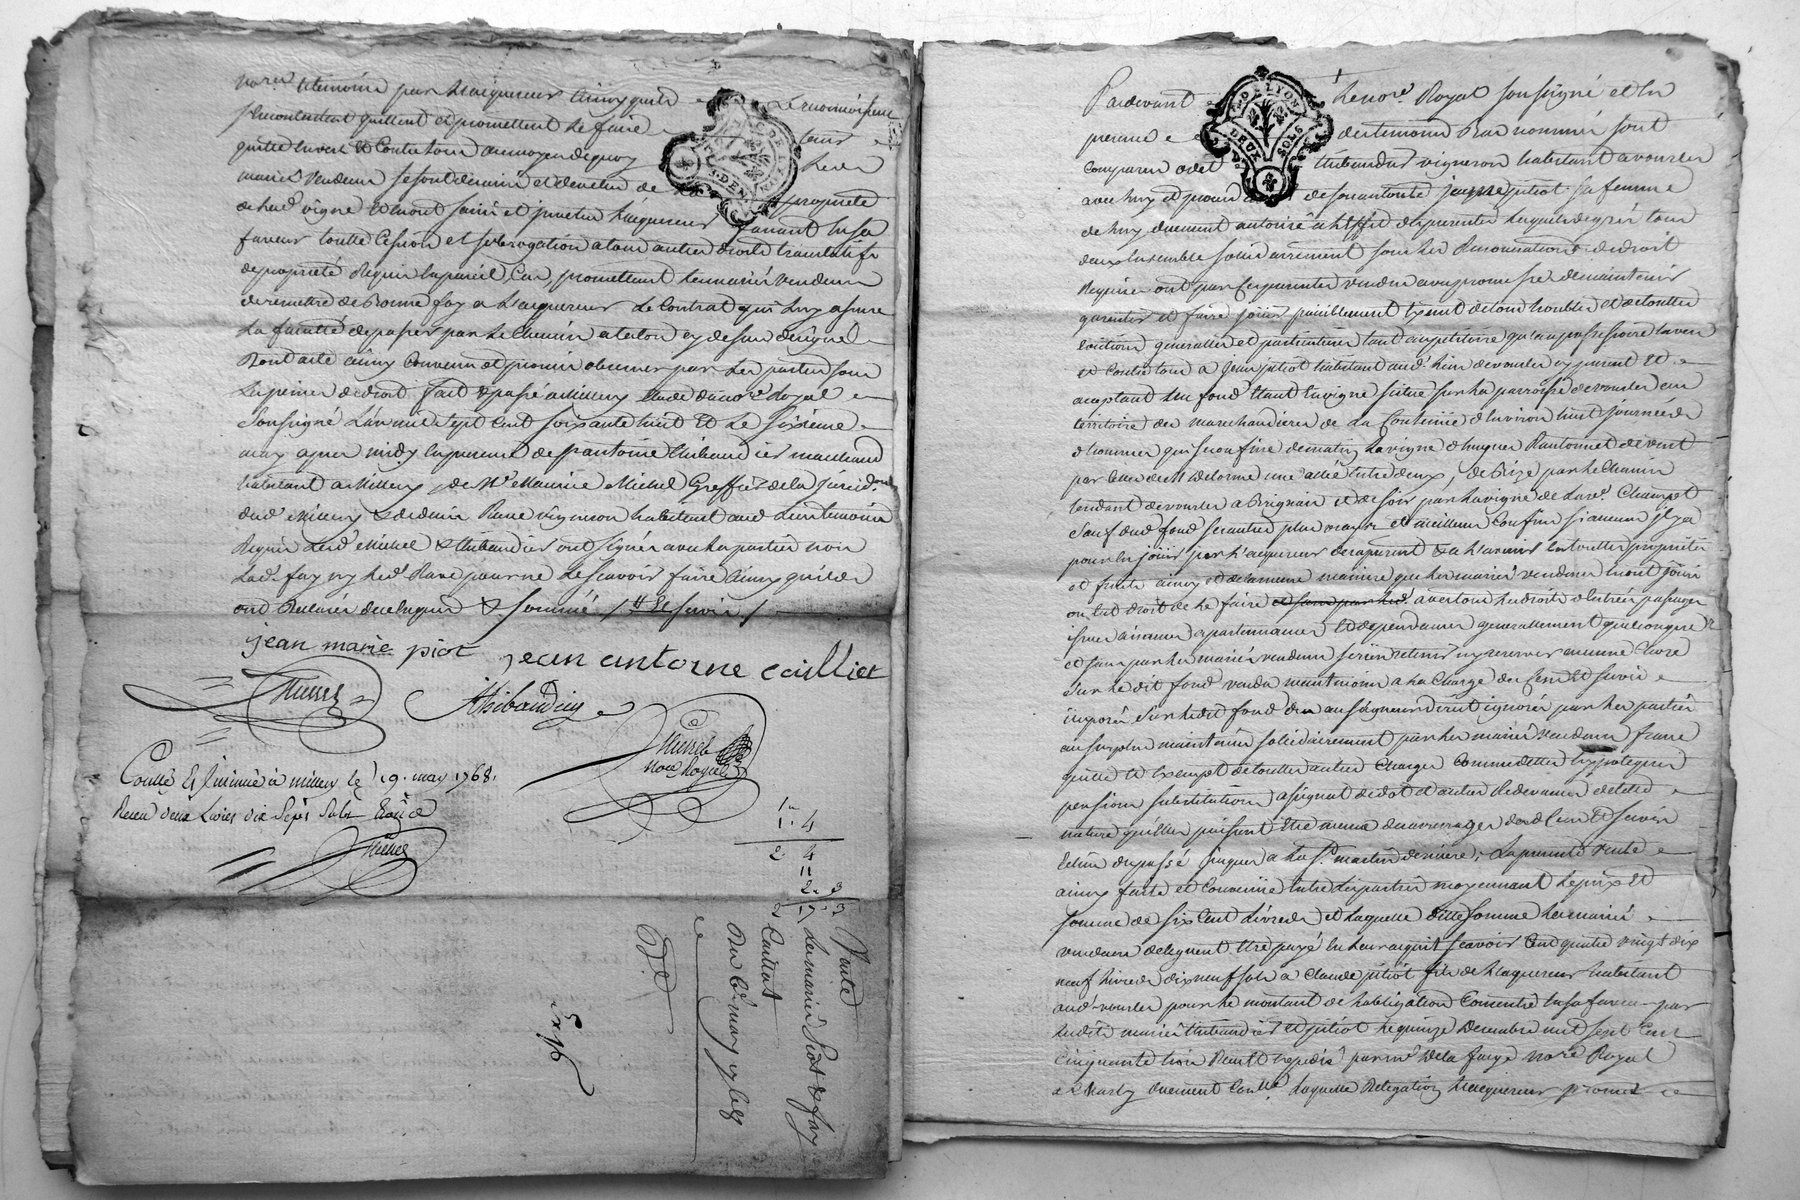 par l'acquereur ainsy quils Le reconnoissent
se contentent quittent et promettent le faire tenir
quitte envers et contre tous au moyen de quoy les
mariés vendeurs se sont demis et devetus de propriété
de lad. vigne et en ont saisi et investu l'acquereur avant en sa
faveur toutte Cession et subrogation a tous autres droits translatifs
de propriété Requis en pareil Cas, promettent les mariés vendeurs
de remettre de Bonne foy a l'acquereur Le Contrat qui luy assure
La faculté de passer par le Chemin a talon cy dessus designé
Dont acte ainsy Convenu et promis observer par les parties sous
Les peines de droit fait et passé a millery etude du no.re Royal
Soussigné L'an mil sept Cent soixante huit Et Le sixieme
may apres midy en presence de s.r antoine thibaudier marchand
habitant a millery, de M.e Maurice Michel Greffier de la jurid.on
dud. millery & de denis Rave vigneron habitant aud. Lieu temoins
Requis Led. Michel & thibaudier ont signés avec les parties non
lad. fay ny led. Rave pour ne le scavoir faire ainsy qu'il
ont declarés de ce Enquis & sommé / & servis /
jean marie piot jean antoine caillet
Michel Thibaudier
Michel
No.re Royal
Contlé Et Insinué à millery le 19. may 1768.
Receu deux Livres dix Sept Sols
Michel
1 - 4
1 . 4
2 4
11
2 . 3
2 17 3
Vente
Les mariés Piot & fay
a Caillet
Du 6.e may 1768
Exp.
Pardevant Le no.re Royal soussigné et en
presence des temoins Bas nommés sont
Comparus odet thibaudier vigneron habitant a vourles
avec luy et procédant de son autorité jeanne jutiot sa femme
de luy duement autorisée à l'effet des presentes lesquels de gré tous
deux Ensemble solidairement sous les Renonciations de droit
Requises ont par ces presentes vendu avec promesse de maintenir
garentir et faire jouir paisiblement Exempt de tous troubles et de touttes
evictions generalles et particulieres tant au petitoire qu'au possessoire Envers
et Contre tous a jean jutiot habitant aud. lieu de vourles cy present et
acceptant Un fond Etant En vigne situé sur la parroisse de vourles au
territoire des marchandieres de La Contenue d'Environ huit journées
d'hommes qui se confine de matin La vigne d'hugues de vent
par celle de M. delorme une allée Entre deux, de Bize par le Chemin
tendant de vourles a Brignais et de soir par La vigne de Champet
Sauf dud. fond ses autres plus vrays et meilleurs Confins si aucun il y a
pour En jouir par L'acquereur des a present & a L'avenir En toutte propriété
et fruits ainsy et de la meme maniere que les mariés vendeurs En ont joui
ou Eut droit de le faire avec tous les droits d'Entrées passages
issues aisances appartenances Et dependances generallement quelconques
et sans par les mariés vendeurs s'y rien retenir ny reserver aucune chose
sur le dit fond vendu neantmoins a La Charge du Cens Et servis
imposés sur ledit fond du au seigneur direct ignoré par les parties
au surplus maintenu solidairement par les mariés vendeurs franc
quitte et Exempt de touttes autres Charges Comme dettes hypoteques
pensions substitutions assignat de dot et autres Redevances de telle
nature qu'elles puissent Etre meme des arrerages dud. Cens Et servis
Echus du passé jusques a La S.t martin derniere; La presente Vente
ainsy faite et Convenue Entre Les parties moyennant Le prix Et
somme de six Cent Livres et laquelle ditte somme Les mariés
vendeurs deleguent Etre payé En leur acquit scavoir Cent quatre vingt dix
neuf livres dix neuf sols a Claude jutiot fils de L'acquereur habitant
aud. vourles pour le montant de L'obligation Consentie En sa faveur par
Lesdits mariés thibaudier Et jutiot le quinze Decembre mil sept Cent
Cinquante trois Reçu & expédié par M.e Delaforge No.re Royal
a Charly duement Contlé. Laquelle Delegation L'acquereur promet
DEUX SOLS